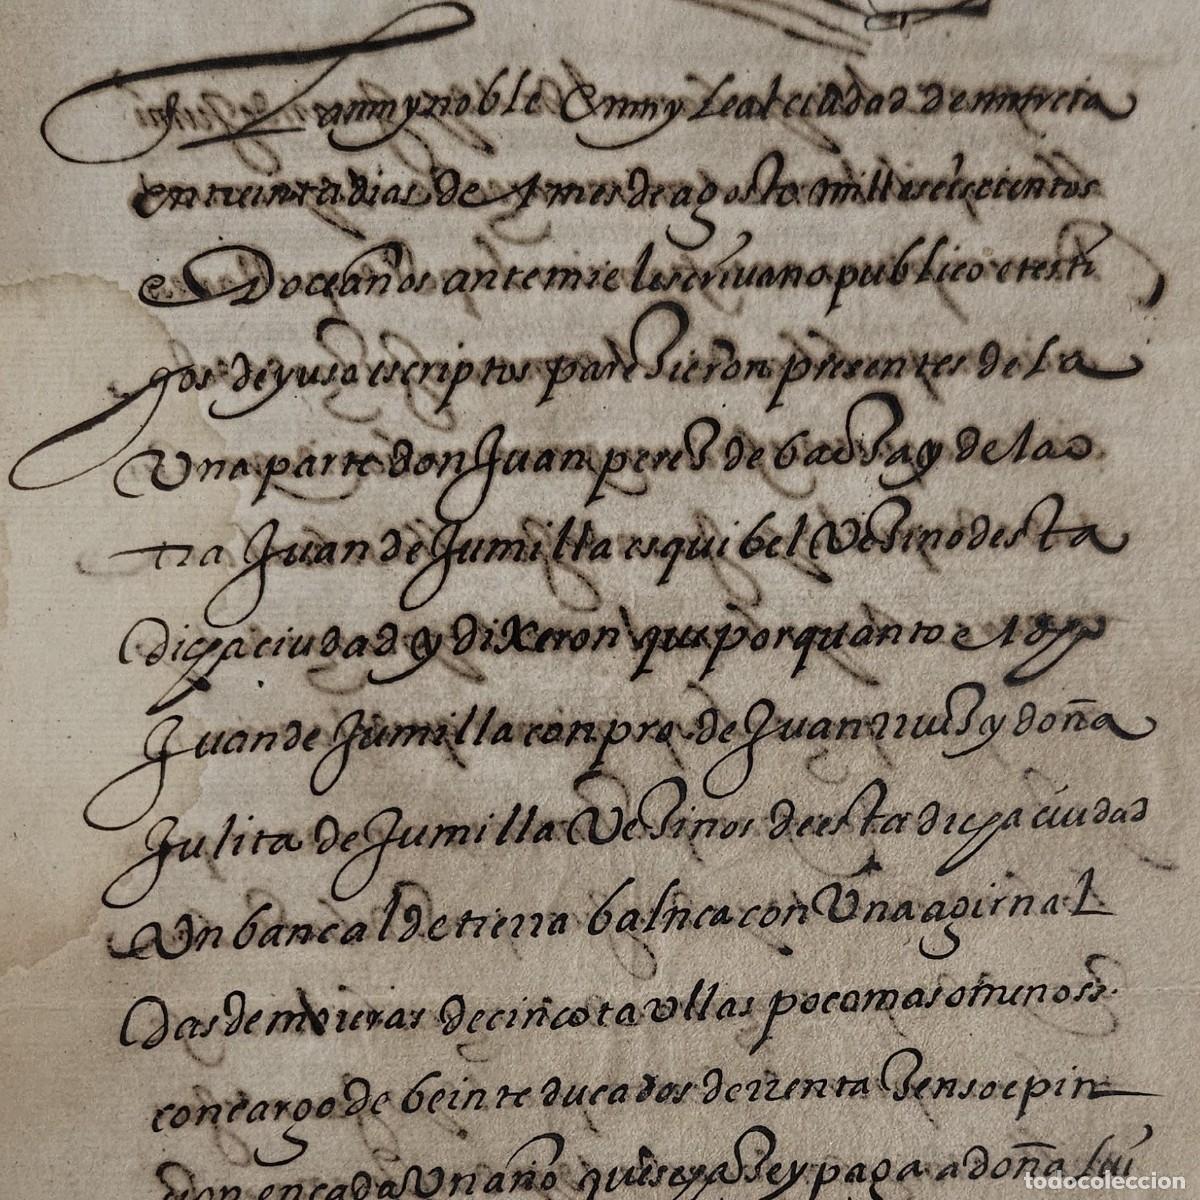 En La muy noble E muy Leal ciudad de murcia
en treinta dias de l mes de agosto mill e seiscientos
e Doce años ante mi el escrivano publico e testi
gos de yuso escriptos paresieron presentes de la
Una parte don Juan peres de baesa y de la o
tra Juan de Jumilla esquibel Vesino desta
dicha ciudad y dixeron que por quanto el dho
Juan de Jumilla conpro de Juan rruis y doña
Julita de Jumilla Vesinos de esta dicha ciudad
Un bancal de tierra balnca con Una
das de moreras de cinco taullas poco mas o menos
con cargo de beinte ducados de rrenta senso e pin
cion en cada Un año que se a de paga a doña Lui
todocoleccion